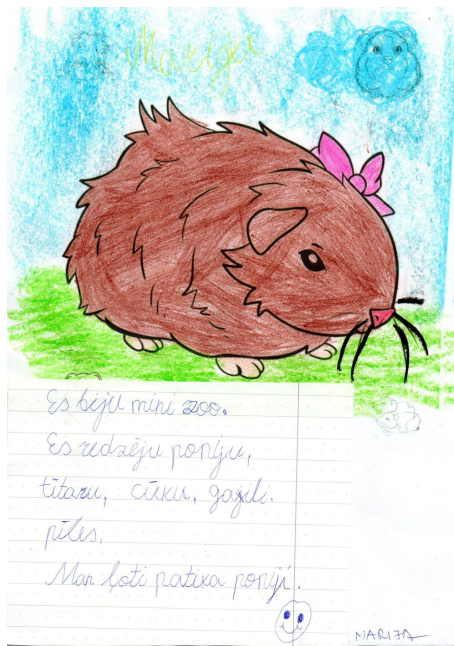 Marija
Es biju mini zoo.
Es redzēju poniju,
tītaru, cūku, gaili.
pīles.
Man ļoti patika poniji.
MARIJA